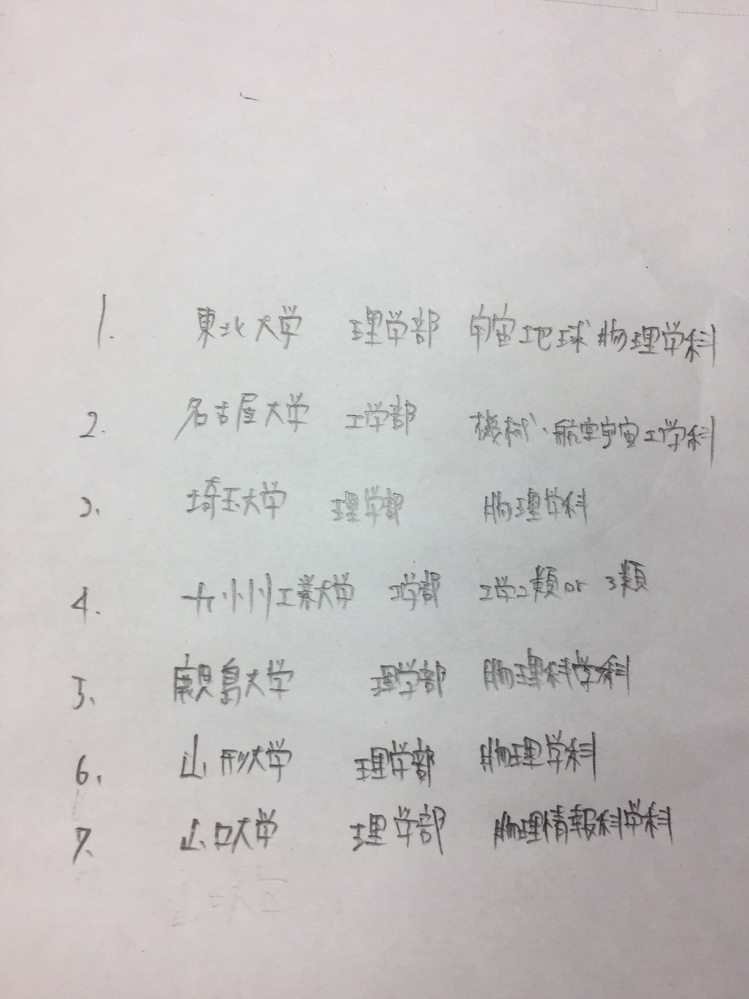 1. 東北大学 理学部 宇宙地球物理学科
2. 名古屋大学 工学部 機械・航空宇宙工学科
3. 埼玉大学 理学部 物理学科
4. 九州工業大学 工学部 工学2類or 3類
5. 鹿児島大学 理学部 物理科学科
6. 山形大学 理学部 物理学科
7. 山口大学 理学部 物理情報科学科